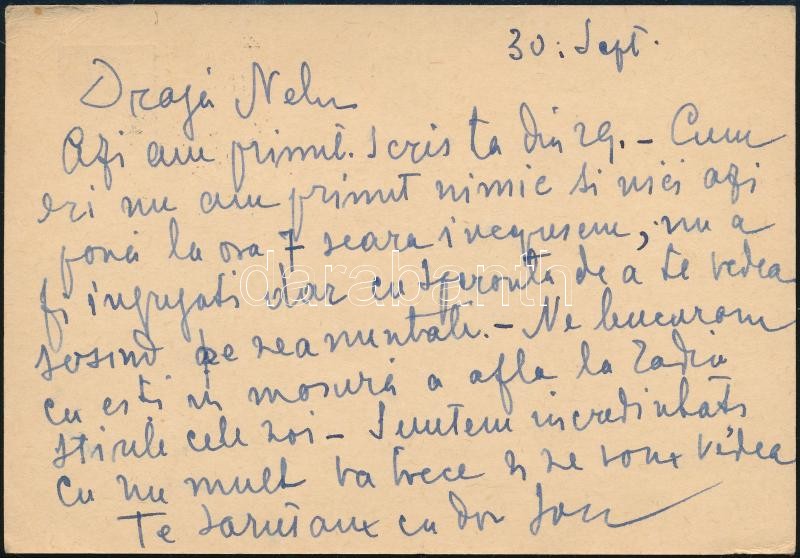 30. Sept.
Dragă Nelu
Azi am primit scris ta din 29. – Cum
eri nu am primit nimic si nici azi
pona la ora 7 seara incepusem, nu a
fi ingrijati dar cu speronta de a te vedea
sosind pe neanuntate. – Ne bucurom
cu esti in mosură a afla la Radio
stirile cele noi – Suntem incredintati
cu nu mult va trece si ne vom vedea
Te sarutam cu dor
darabanth